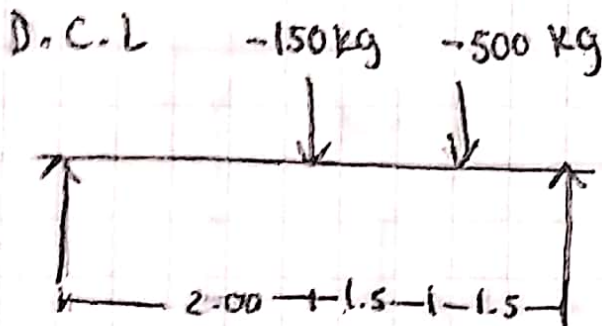 D.C.L -150kg -500 kg
2.00 1.5 1.5